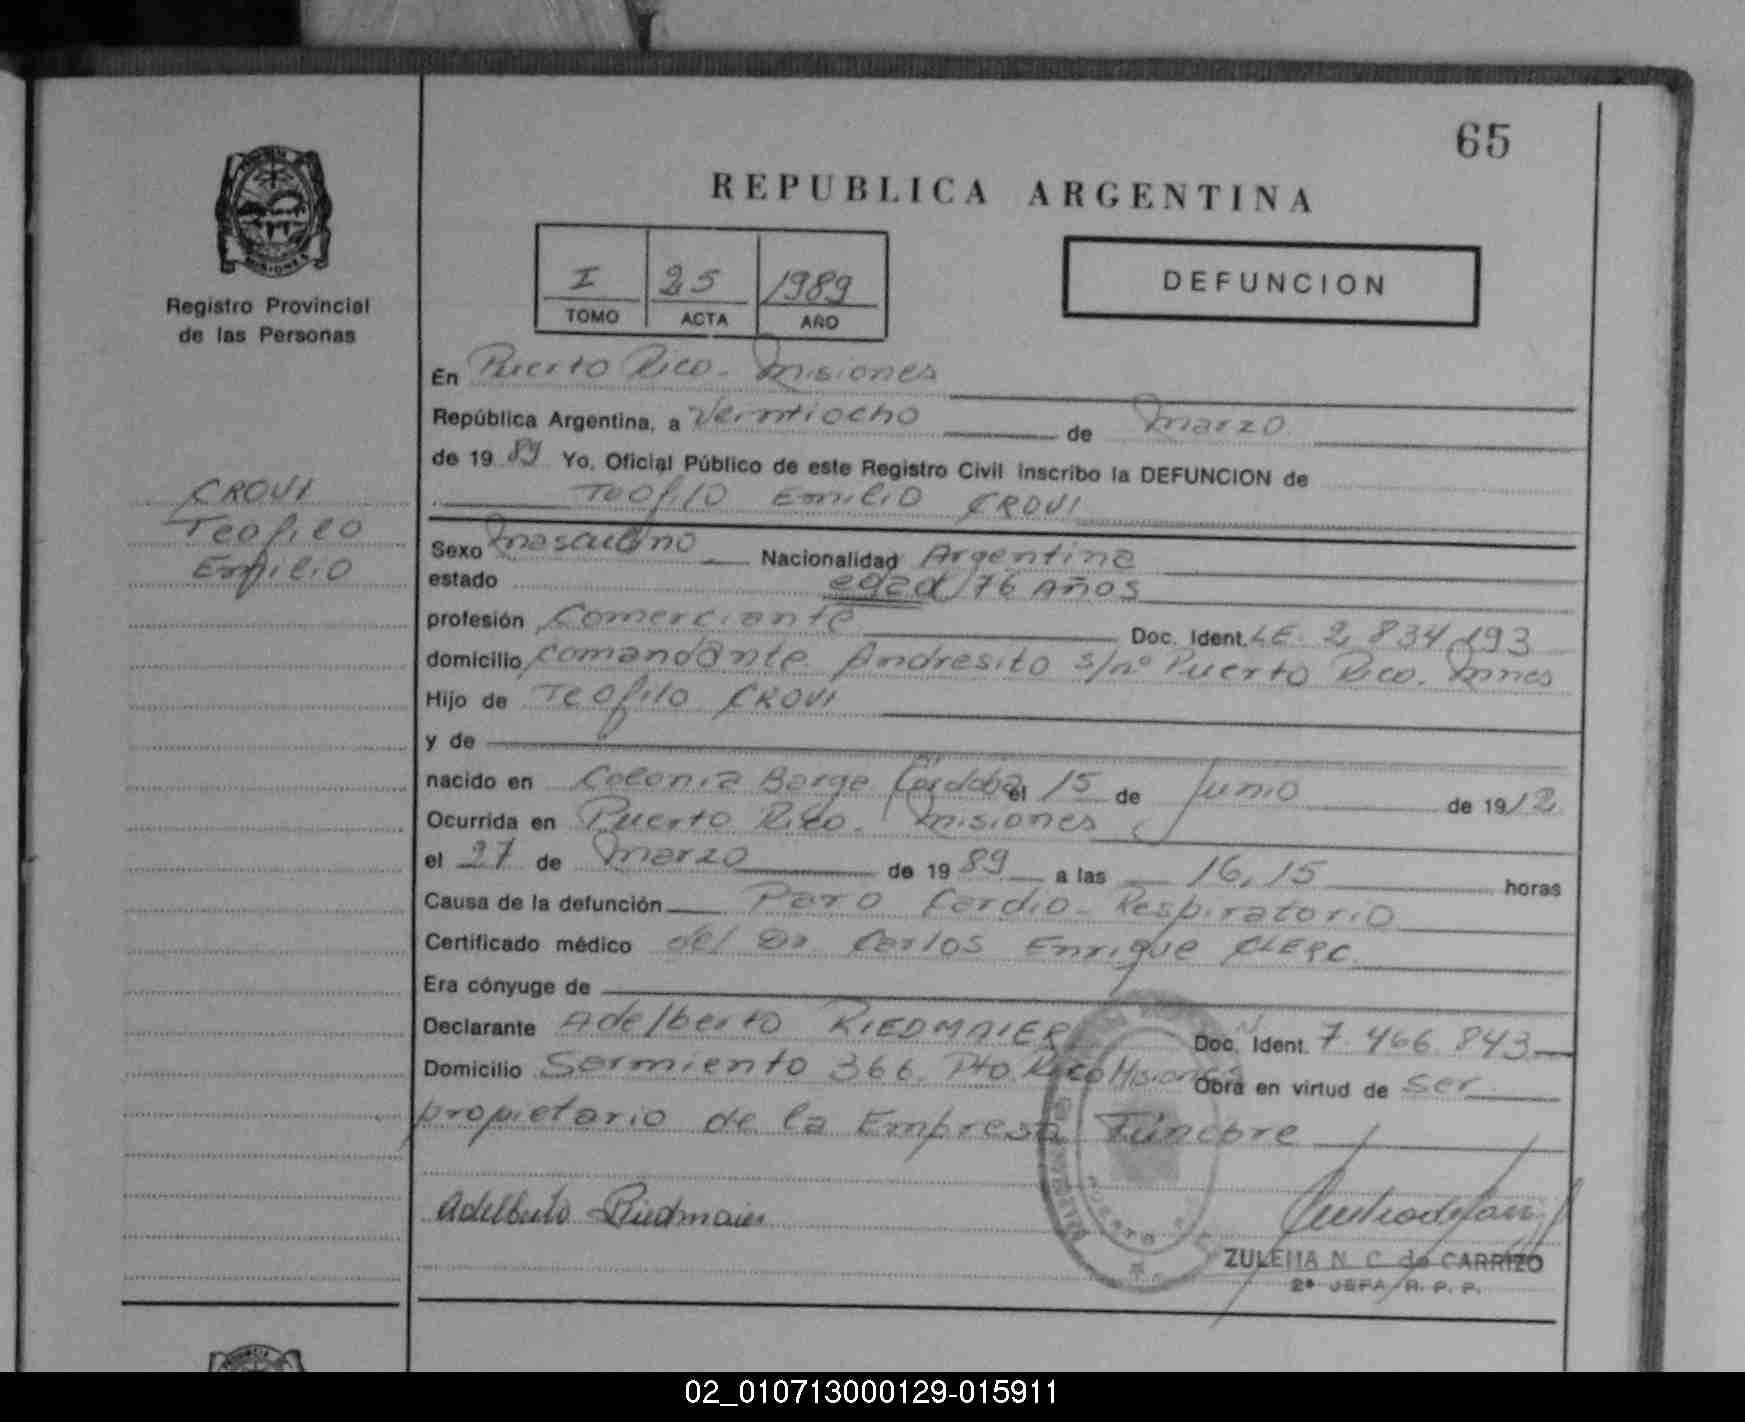 65
REPUBLICA ARGENTINA
PROVINCIA
MISIONES
Registro Provincial
de las Personas
I 25 1989
TOMO ACTA AÑO
DEFUNCION
En Puerto Rico - Misiones
República Argentina, a Veintiocho de Marzo
de 19 89 Yo, Oficial Público de este Registro Civil inscribo la DEFUNCION de
Teofilo Emilio CROVI
CROVI
Teofilo
Emilio
Sexo Masculino Nacionalidad Argentina
estado edad 76 Años
profesión Comerciante Doc. Ident. L.E. 2.834.193
domicilio Comandante Andresito s/nº Puerto Rico. Mnes
Hijo de Teofilo CROVI
y de
nacido en Colonia Barge Córdoba el 15 de Junio de 1912
Ocurrida en Puerto Rico. Misiones
el 27 de Marzo de 1989 a las 16,15 horas
Causa de la defunción Paro Cardio-Respiratorio
Certificado médico del Dr Carlos Enrique CLERC.
Era cónyuge de
Declarante Adelberto RIEDMAIER Doc. Ident. 7.466.843
Domicilio Sarmiento 366. Pto. Rico Misiones Obra en virtud de ser
propietario de la Empresa Fúnebre
Adelberto Riedmaier
ZULEMA N. C. de CARRIZO
2ª JEFA R. P. P.
PROVINCIA
02_010713000129-015911